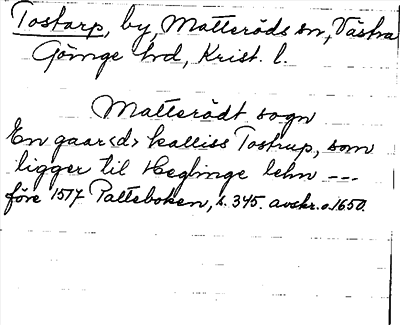 Tostarp, by, Matteröds sn, Västra
Göinge hd, Krist. l.
Matterödt sogn
En gaar<d> kalliss Tostrup, som
ligger til Heglinge lehn ---
före 1517 Palteboken, s. 345. avskr. o. 1650.